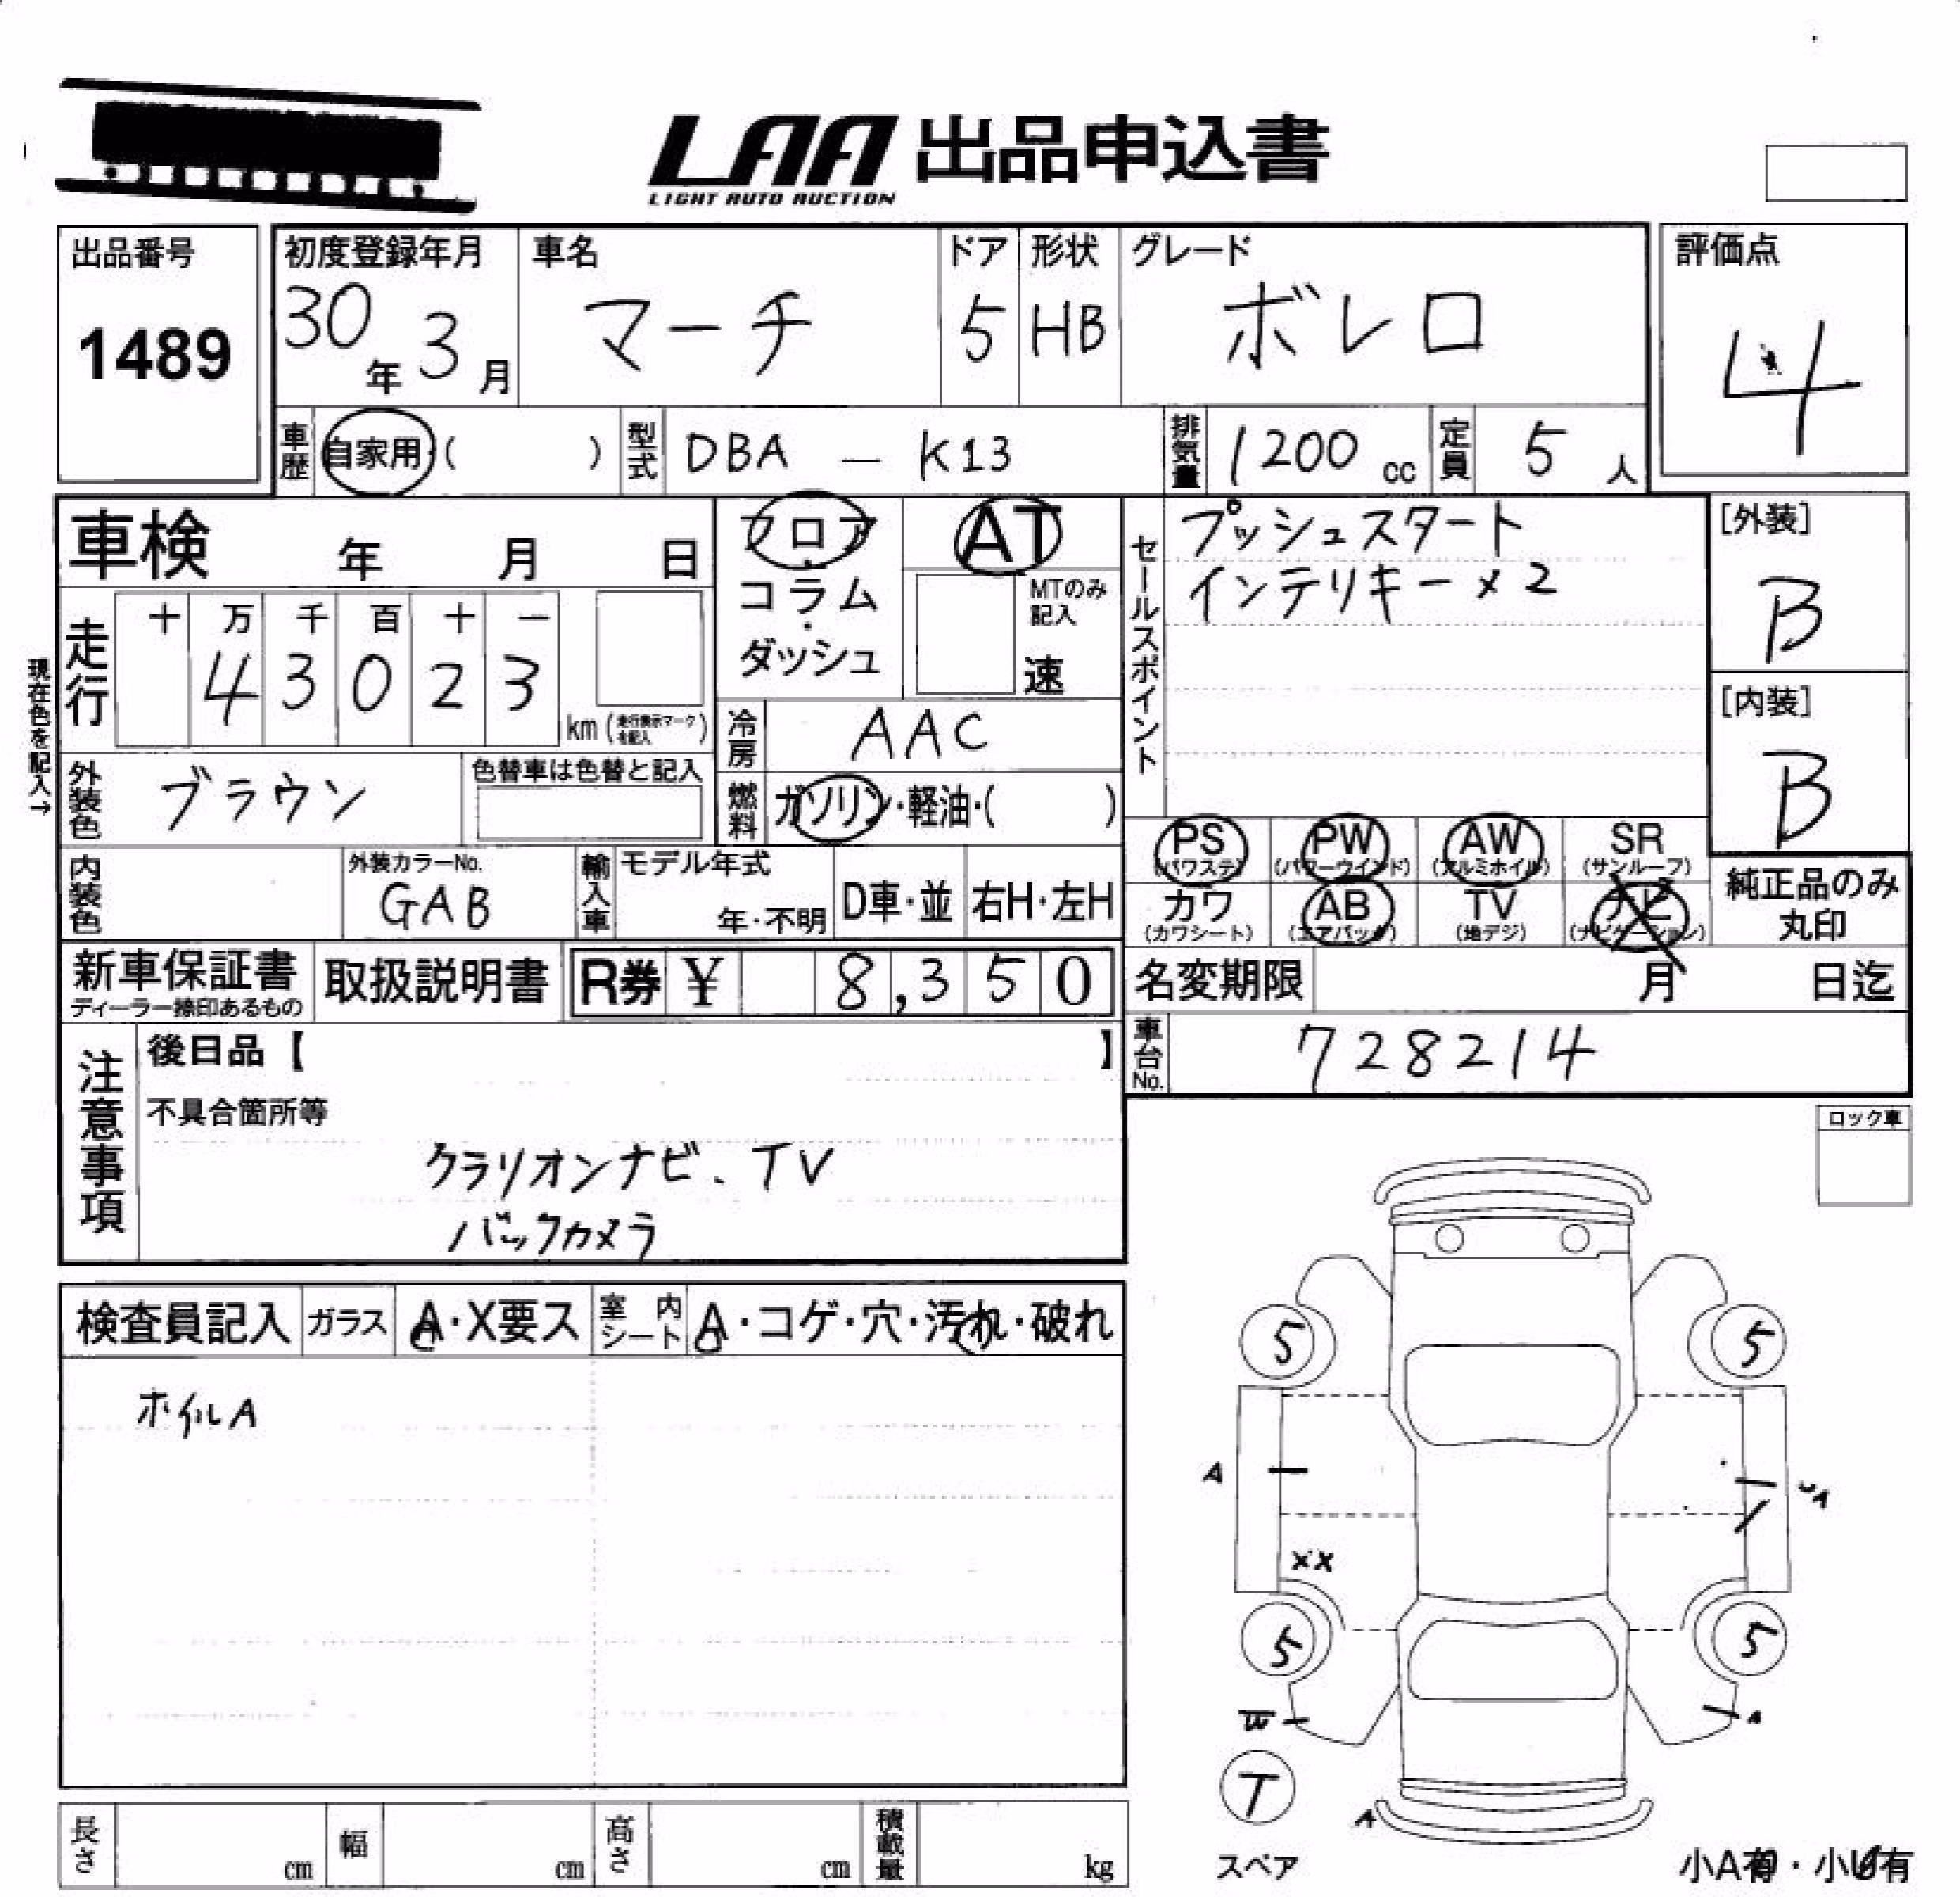 LAA 出品申込書
LIGHT AUTO AUCTION
出品番号
1489
初度登録年月
30年 3月
車名
マーチ
ドア
5
形状
HB
グレード
ボレロ
評価点
4
車歴
自家用・( )
型式
DBA — K13
排気量
1200 cc
定員
5 人
車検 年 月 日
現在色を記入→
走行
十 万 千 百 十 一
4 3 0 2 3
km (走行表示マークを記入)
フロア・コラム・ダッシュ
AT
MTのみ記入
速
冷房
AAC
燃料
ガソリン・軽油・( )
セールスポイント
プッシュスタート
インテリキー×2
[外装]
B
[内装]
B
外装色
ブラウン
色替車は色替と記入
内装色
外装カラーNo.
GAB
輸入車
モデル年式
年・不明
D車・並
右H・左H
PS (パワステ)
PW (パワーウインド)
AW (アルミホイル)
SR (サンルーフ)
カワ (カワシート)
AB (エアバック)
TV (地デジ)
ナビ (ナビゲーション)
純正品のみ丸印
新車保証書
ディーラー捺印あるもの
取扱説明書
R券 ¥ 8,350
名変期限 月 日迄
車台No.
728214
注意事項
後日品【 】
不具合箇所等
クラリオンナビ、TV
バックカメラ
ロック車
検査員記入
ガラス
A・X要ス
室内シート
A・コゲ・穴・汚れ・破れ
ホイルA
5
5
A
XX
5
5
A
T
スペア
A
小A有・小U有
長さ cm
幅 cm
高さ cm
積載量 kg